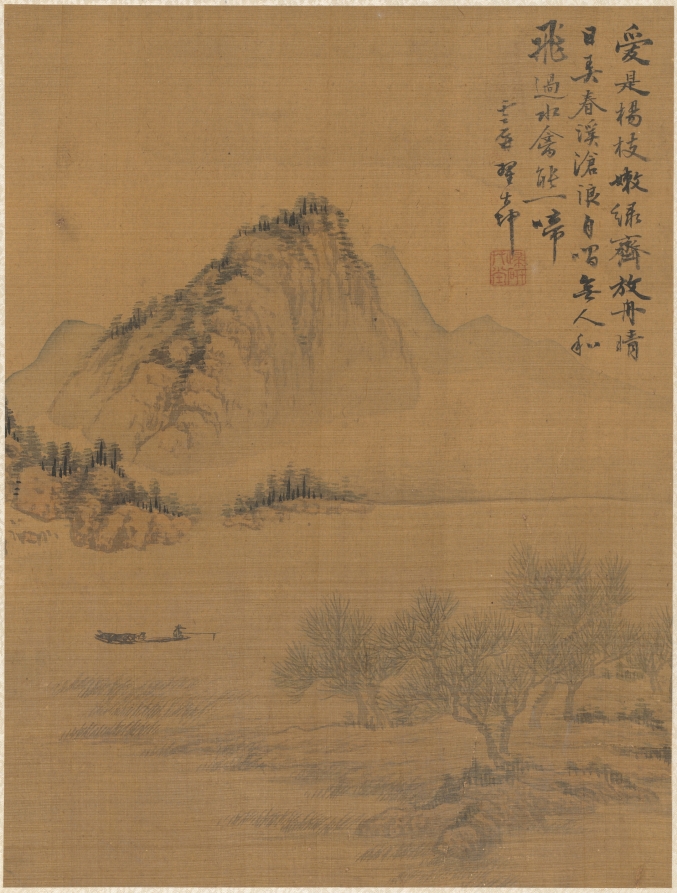 愛是楊枝嫩綠齊放舟晴
日美春溪滄浪自唱無人和
飛過水禽能一啼